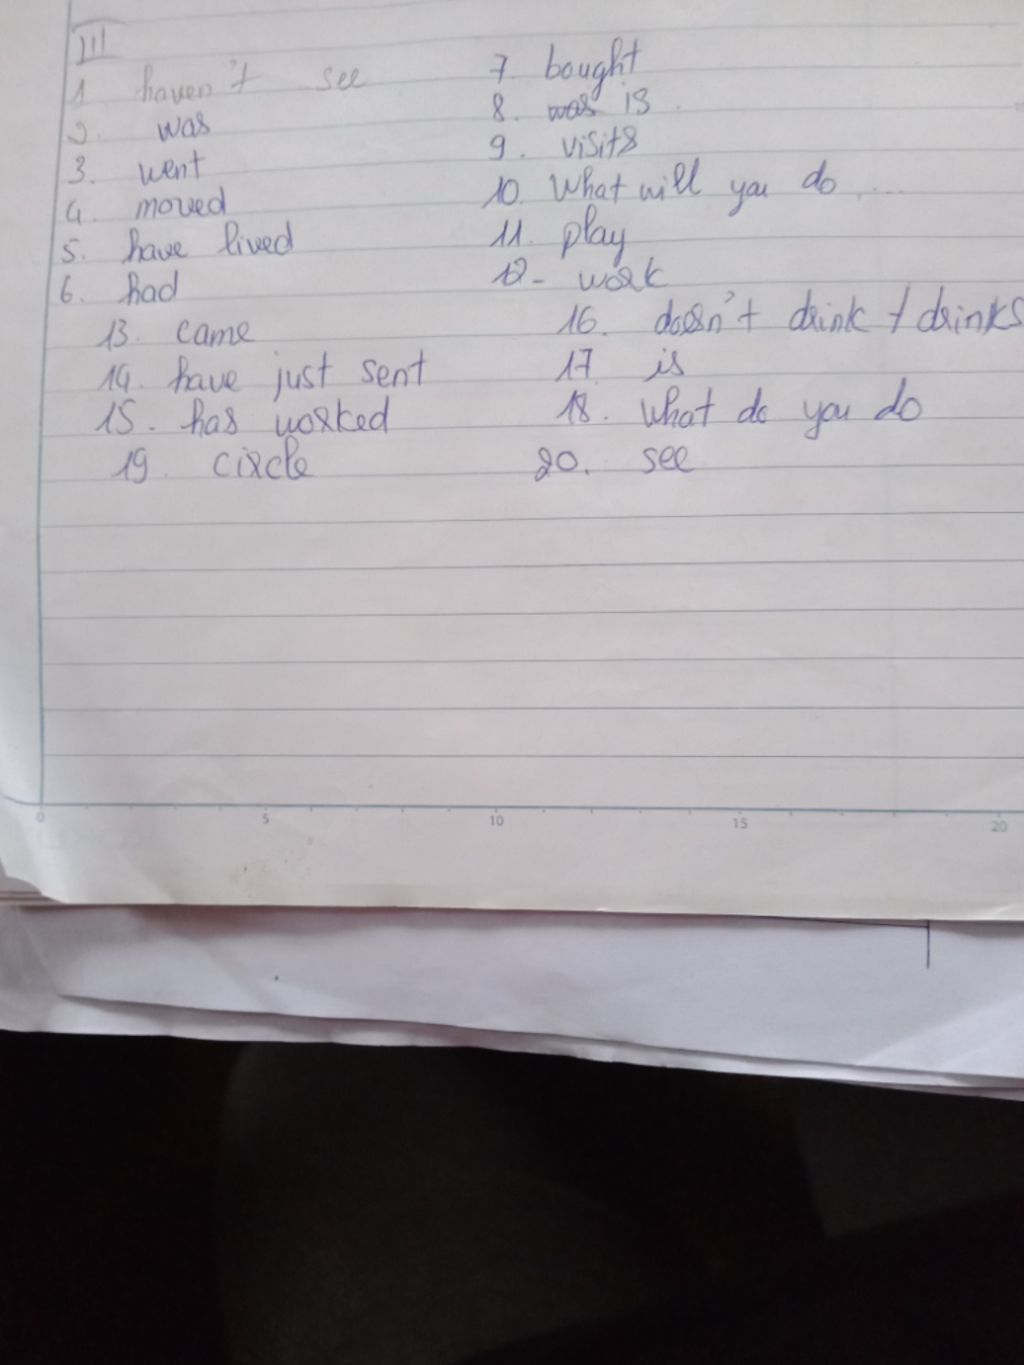 III
1 haven't see
2. was
3. went
4. moved
5. have lived
6. had
7. bought
8. was is.
9. visits
10. What will you do ....
11. play
12- work
13. came
14. have just sent
15. has worked
16. doesn't drink / drinks
17. is
18. what do you do
19. circle
20. see
0 5 10 15 20